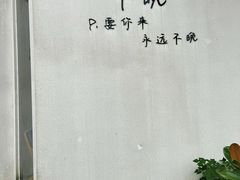 不晚
P:要你来
永远不晚